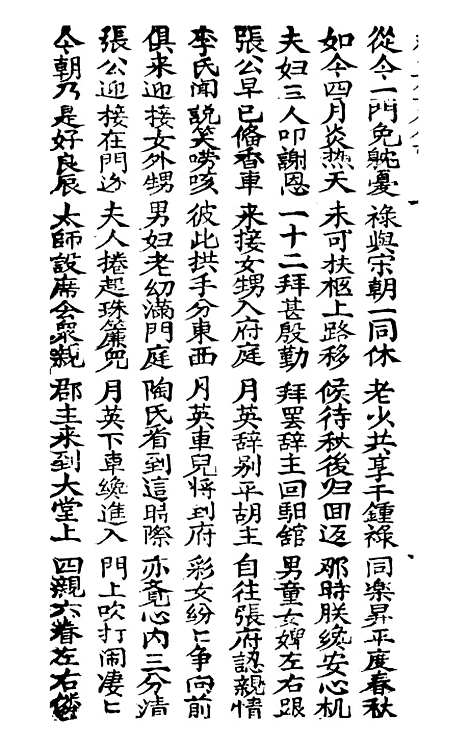 從今一門免躭憂 祿與宋朝一同休 老少共享千鍾祿 同樂昇平度春秋
如今四月炎热天 未可扶柩上路移 候待秋後归田返 那時朕纔安心机
夫妇三人叩謝恩 一十二拜甚殷勤 拜罢辞主回馹舘 男童女婢左右跟
張公早已俻香車 来接女甥入府庭 月英辞别平胡主 自往張府認親情
李氏闻説笑唠咳 彼此拱手分東西 月英車兒将到府 彩女紛匕争向前
俱来迎接女外甥 男妇老幼滿門庭 陶氏看到這時際 亦覔心内三分清
張公迎接在門边 夫人捲起珠簾兜 月英下車纔進入 門上吹打闹凄匕
今朝乃是好良辰 太师設席会衆親 郡主来到大堂上 四親六眷左右